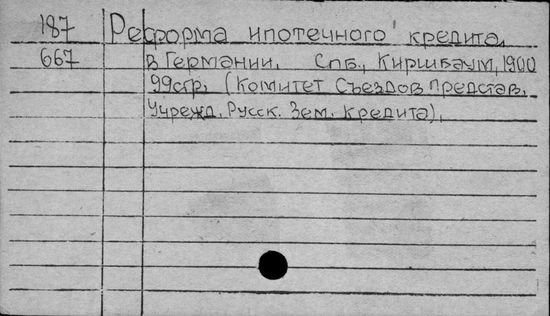 187 Реформа ипотечного кредита
667 в Германии. Спб., Киршбаум, 1900
99стр. (Комитет Съездов Представ.
Учрежд. Русск. Зем. Кредита).